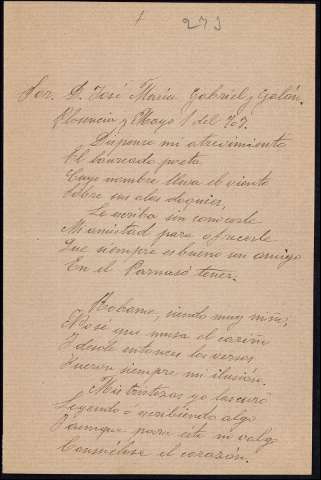 273
Sor. D. José María Gabriel y Galán.
y Mayo 1 del 903.
Dispense mi atrevimiento
El laureado poeta
Cuyo nombre lleva el viento
Sobre sus alas
Le escriba sin conocerle
Mi amistad para ofrecerle
Que siempre es bueno un amigo
En el Parnaso tener.
Robome, siendo muy niño,
No sé que musa el cariño
Y desde entonces los versos
Fueron siempre mi ilusión.
Mis tristezas yo las curo
Leyendo o escribiendo algo
Y aunque para esto no valgo
Consuélase el corazón.